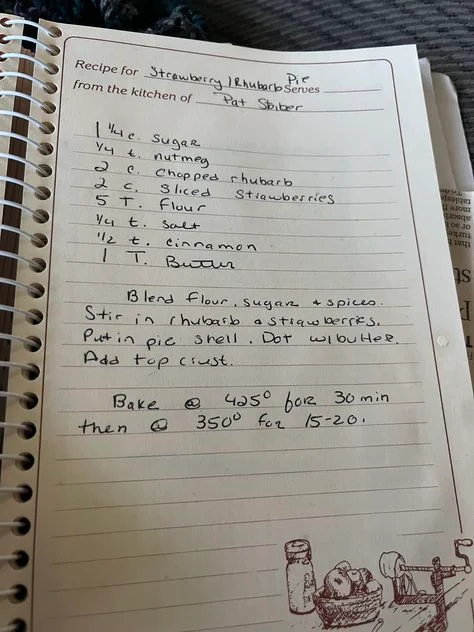 Recipe for Strawberry / Rhubarb Pie Serves
from the kitchen of Pat Sbiber
1 1/4 c. sugar
1/4 t. nutmeg
2 c. chopped rhubarb
2 c. sliced strawberries
5 T. flour
1/4 t. salt
1/2 t. cinnamon
1 T. Butter
Blend flour, sugar + spices.
Stir in rhubarb & strawberries.
Put in pie shell. Dot w/butter.
Add top crust.
Bake @ 425° for 30 min
then @ 350° for 15-20.